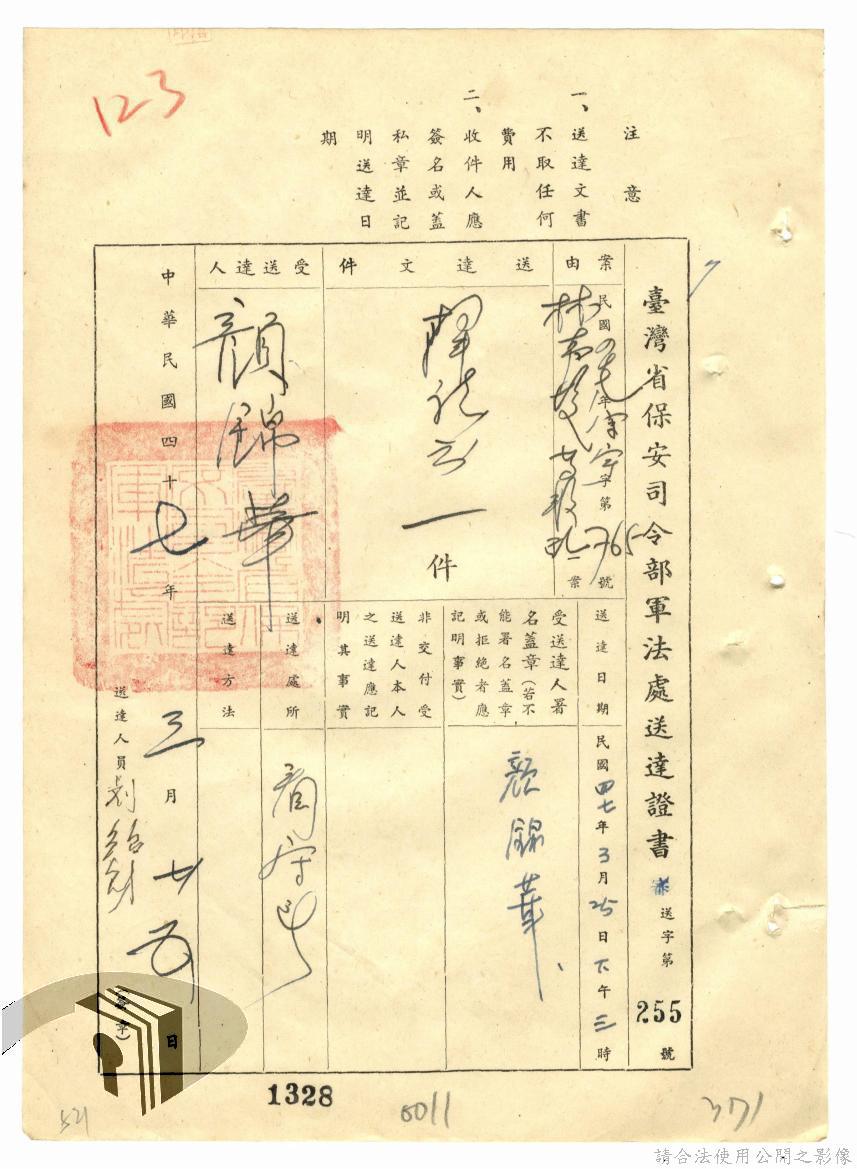 123
注意
一、送達文書
不取任何
費用
二、收件人應
簽名或蓋
私章並記
明送達日
期
臺灣省保安司令部軍法處送達證書
送字第255號
案由
民國四七年字第765號
案
送達文件
一件
受送達人
顏錦華
送達日期
民國四七年3月25日下午三時
受送達人署
名蓋章(若不
能署名蓋章
或拒絕者應
記明事實)
顏錦華
非交付受
送達人本人
之送達應記
明其事實
送達處所
看守所
送達方法
中華民國四十七年三月廿五日
送達人員
(蓋章)
1328
6011
371
521
請合法使用公開之影像